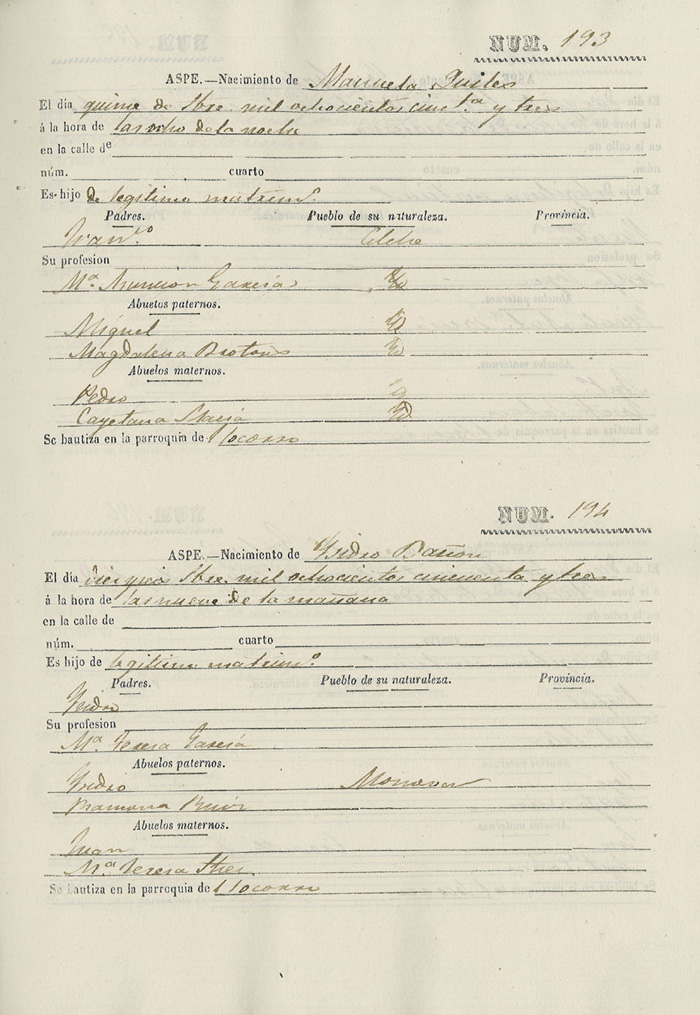 NUM. 193
ASPE.—Nacimiento de Manuela Quiles
El dia quince de Sbre. mil ochocientos cinc.ta y tres
á la hora de las ocho de la noche
en la calle de
núm. cuarto
Es hijo de legitimo matrim.o
Padres. Pueblo de su naturaleza. Provincia.
Fran.co Elche
Su profesion
M.a Asuncion Garcia
Abuelos paternos.
Miguel
Magdalena Brotons
Abuelos maternos.
Pedro
Cayetana
Se bautiza en la parroquia de l Socorro
NUM. 194
ASPE.—Nacimiento de Ysidro Bañon
El dia diez y seis Sbre. mil ochocientos cincuenta y tres
á la hora de las nueve de la mañana
en la calle de
núm. cuarto
Es hijo de legitimo matrim.o
Padres. Pueblo de su naturaleza. Provincia.
Ysidro
Su profesion
M.a Teresa Garcia
Abuelos paternos.
Ysidro Monovar
Ramona
Abuelos maternos.
Juan
M.a Teresa
Se bautiza en la parroquia de l Socorro